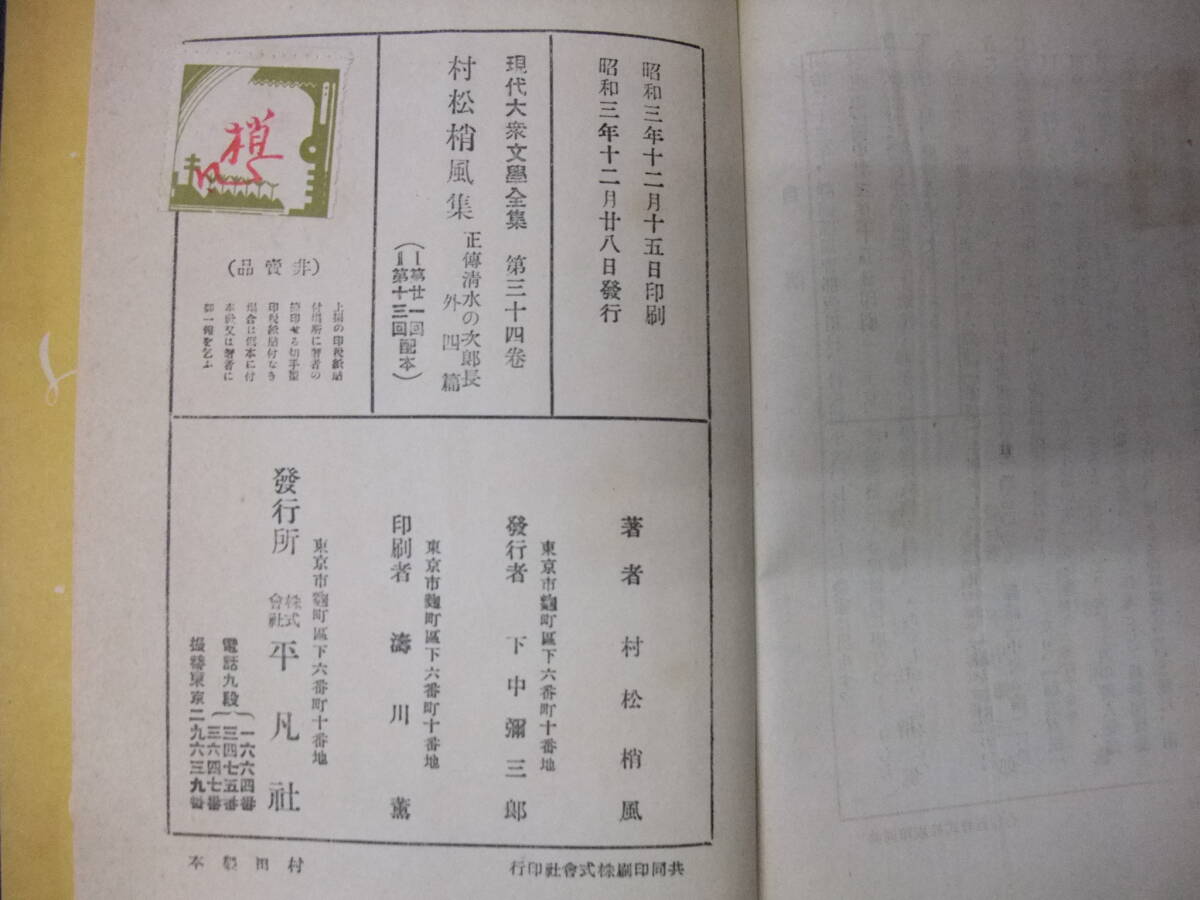 昭和三年十二月十五日印刷
昭和三年十二月廿八日發行
現代大衆文學全集 第三十四卷
村松梢風集
正傳清水の次郎長
外四篇
(第廿一回
第十三回配本)
(非賣品)
上掲の印税紙貼
付場所に著者の
印税紙貼付なき
場合は
本社又は著者に
御一報を乞ふ
著者 村松梢風
東京市麴町區下六番町十番地
發行者 下中彌三郎
東京市麴町區下六番町十番地
印刷者 濤川薰
東京市麴町區下六番町十番地
發行所 株式會社 平凡社
電話九段
一六六四番
三四七五番
三六四七番
振替東京二九六三九番
共同印刷株式會社印行
村田製本